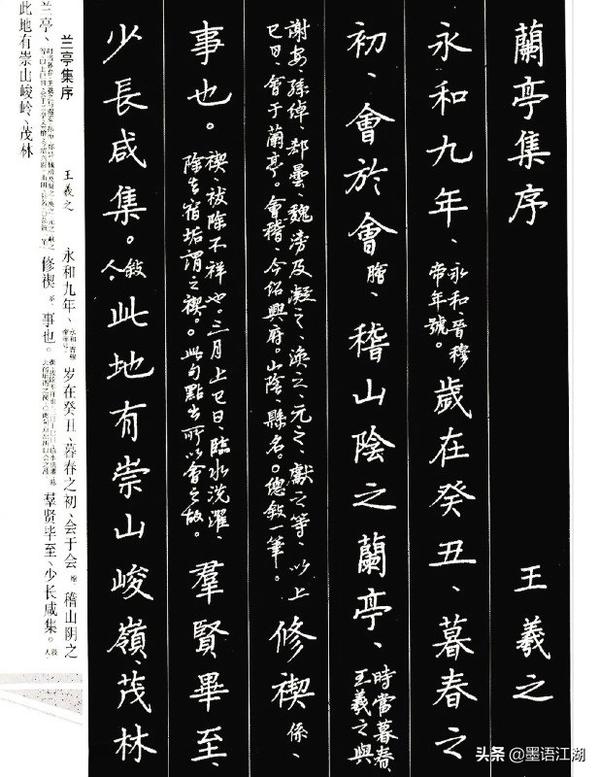 蘭亭集序 王羲之
永和九年、永和、晋穆帝年號。歲在癸丑、暮春之
初、會於會膾、稽山陰之蘭亭、時當暮春、王羲之與
謝安、孫綽、郄曇、魏滂及凝之、渙之、元之、獻之等、以上
巳日、會于蘭亭。會稽、今紹興府。山陰、縣名。○總敘一筆。修禊係、
事也。禊、祓除不祥也。三月上巳日、臨水洗濯、除去宿垢、謂之禊。此句點出所以會之故。羣賢畢至、
少長咸集。敍人、此地有崇山峻嶺、茂林
兰亭集序 王羲之
永和九年、永和、晋穆帝年号。岁在癸丑、暮春之初、会于会 稽山阴之
兰亭、
修禊 事也。 羣贤毕至、少长咸集。叙人、
此地有崇山峻岭、茂林
头条 @墨语江湖